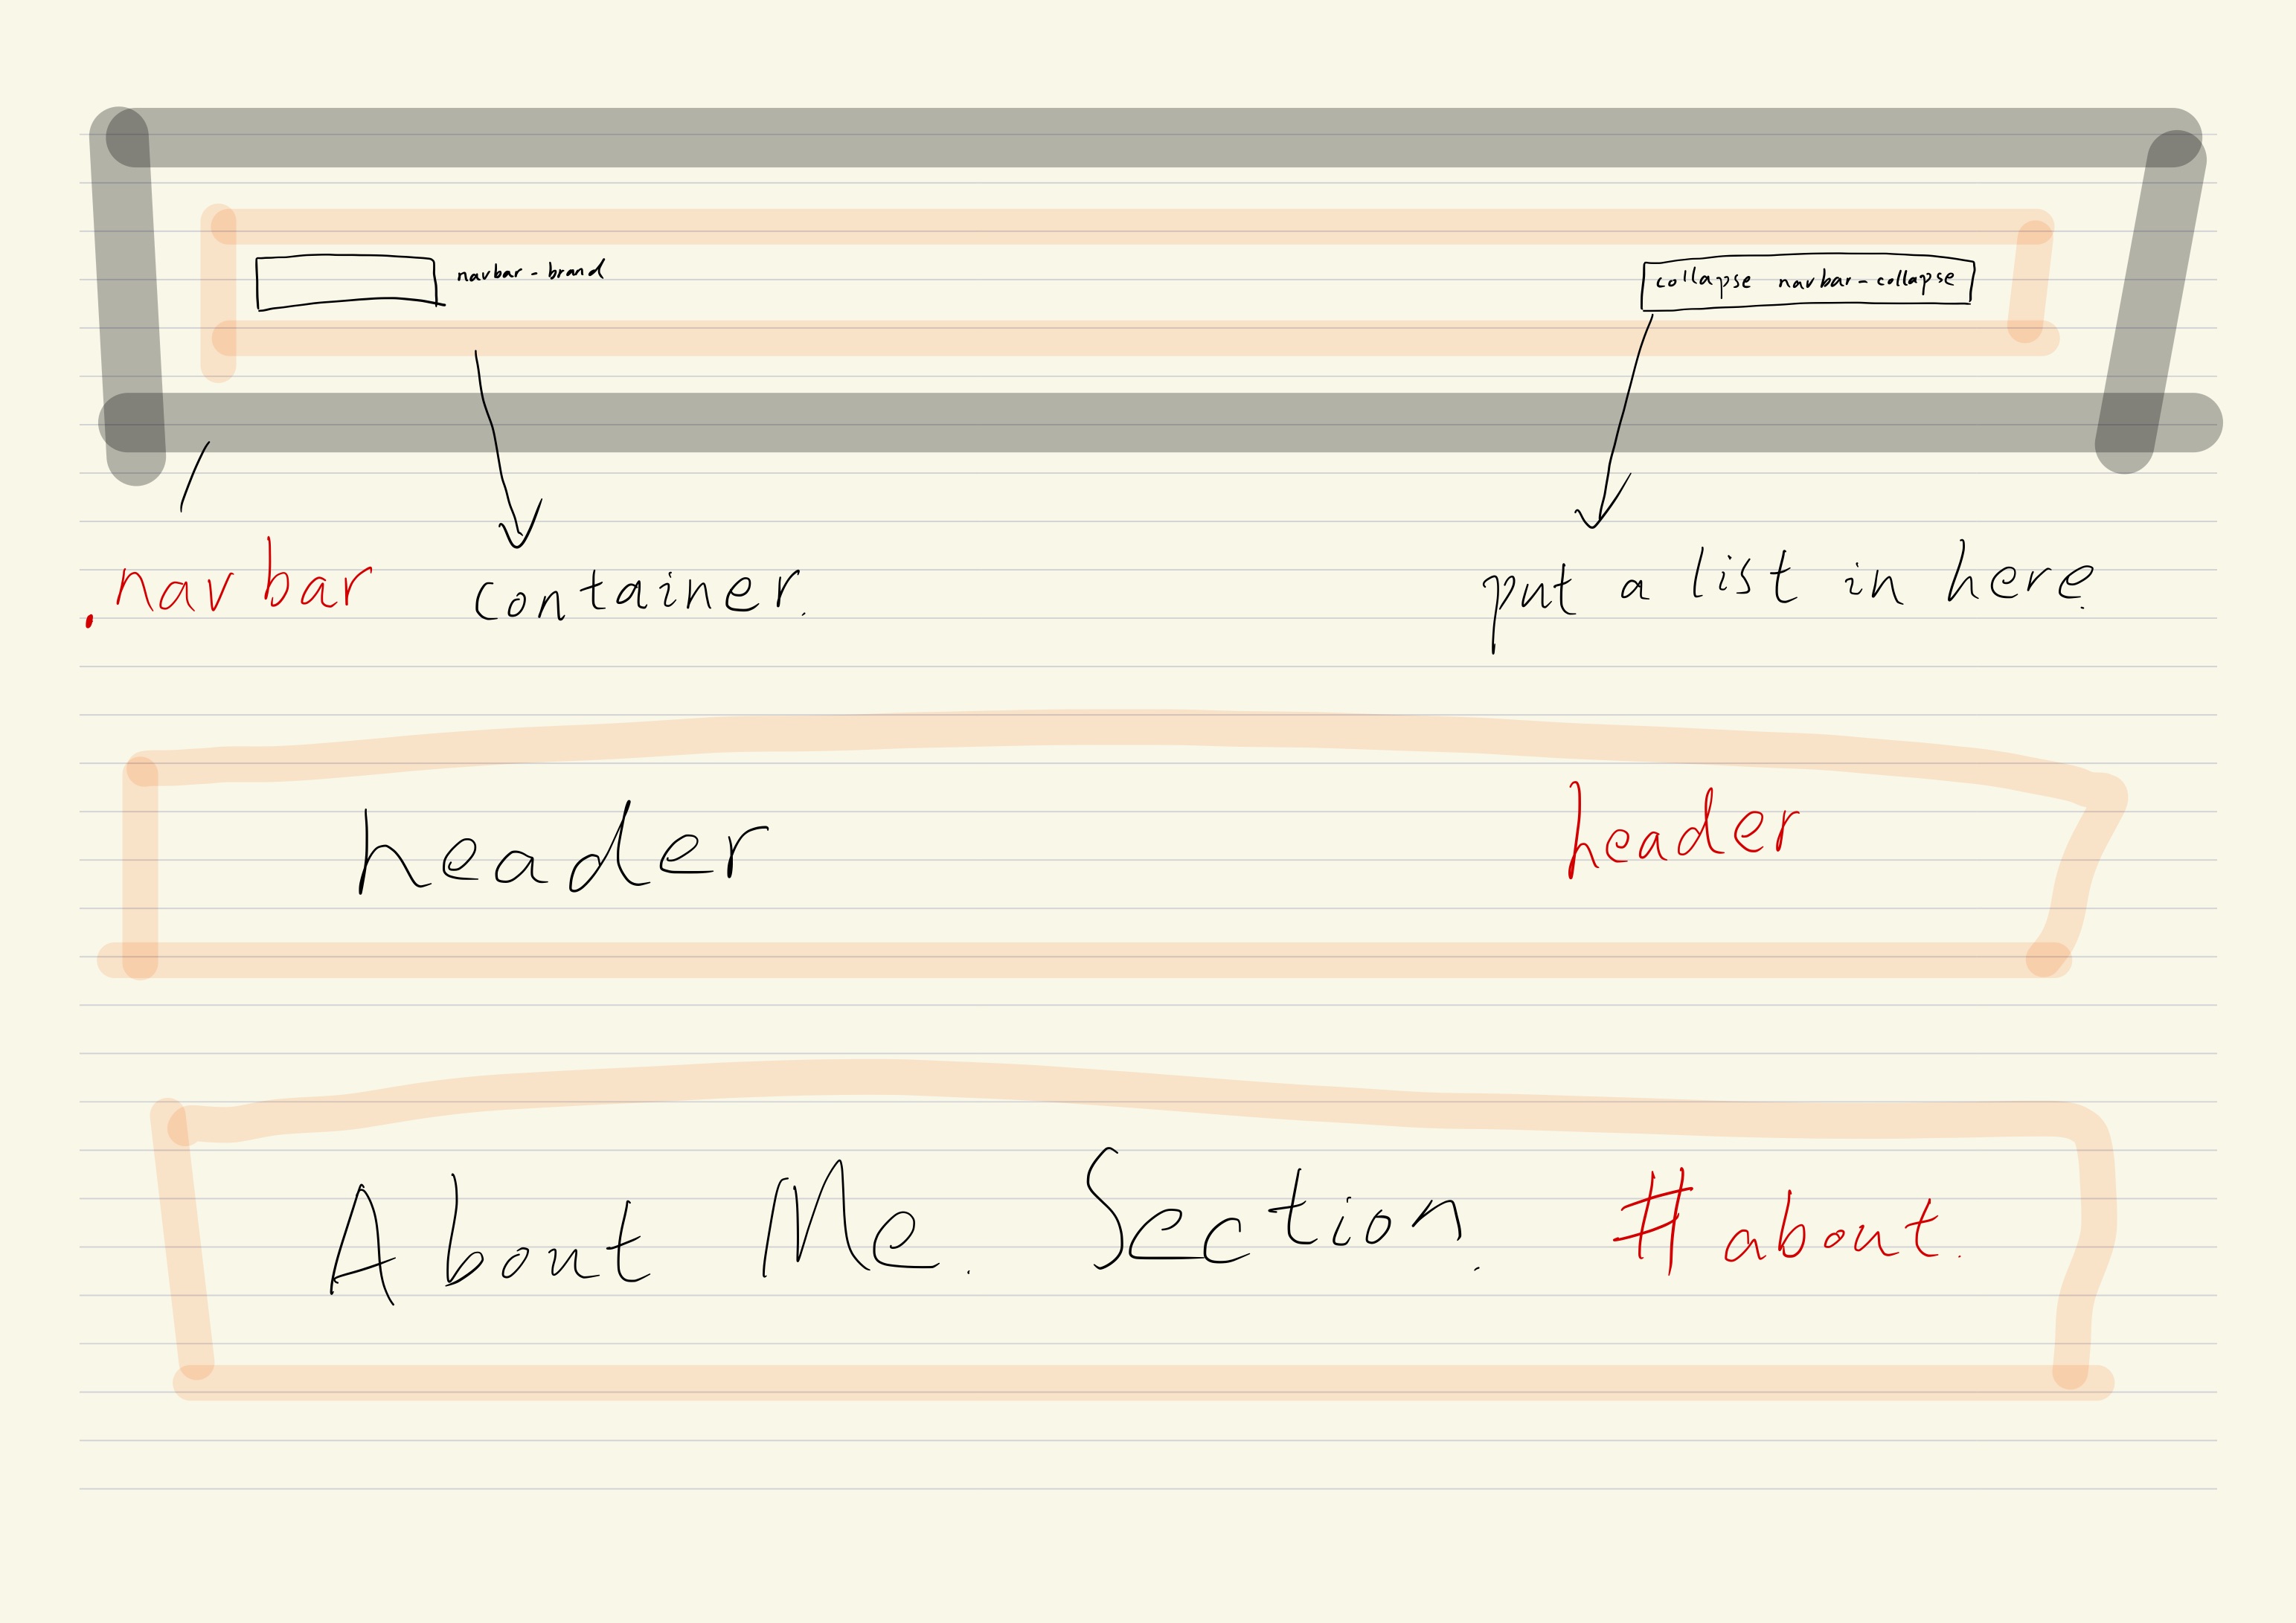 navbar-brand
collapse navbar-collapse
.navbar
container.
put a list in here.
header
header
About Me. Section. #about.